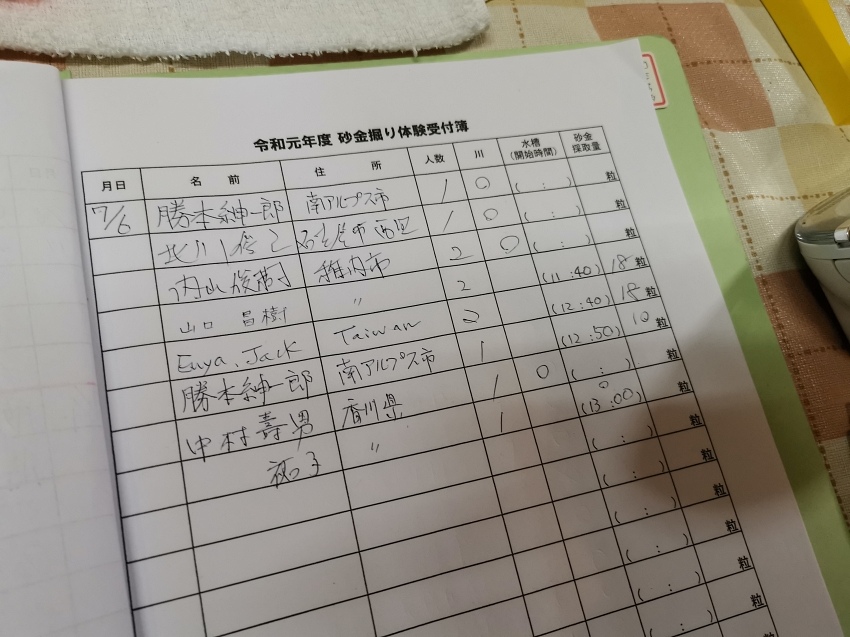 令和元年度 砂金掘り体験受付簿
月日 名 前 住 所 人数 川 水槽 (開始時間) 砂金 採取量
7/6 勝本紳一郎 南アルプス市 1 ○ ( : ) 粒
北川 西区 1 ○ ( : ) 粒
内山 稚内市 2 ○ ( : ) 粒
山口 昌樹 〃 2 (11:40) 18 粒
Euya, Jack Taiwan 2 (12:40) 18 粒
勝本紳一郎 南アルプス市 1 (12:50) 10 粒
中村寿男 香川県 1 ○ ( : ) 粒
裕子 〃 1 ○ (13:00) 粒
( : ) 粒
( : ) 粒
( : ) 粒
( : ) 粒
( : ) 粒
( : ) 粒